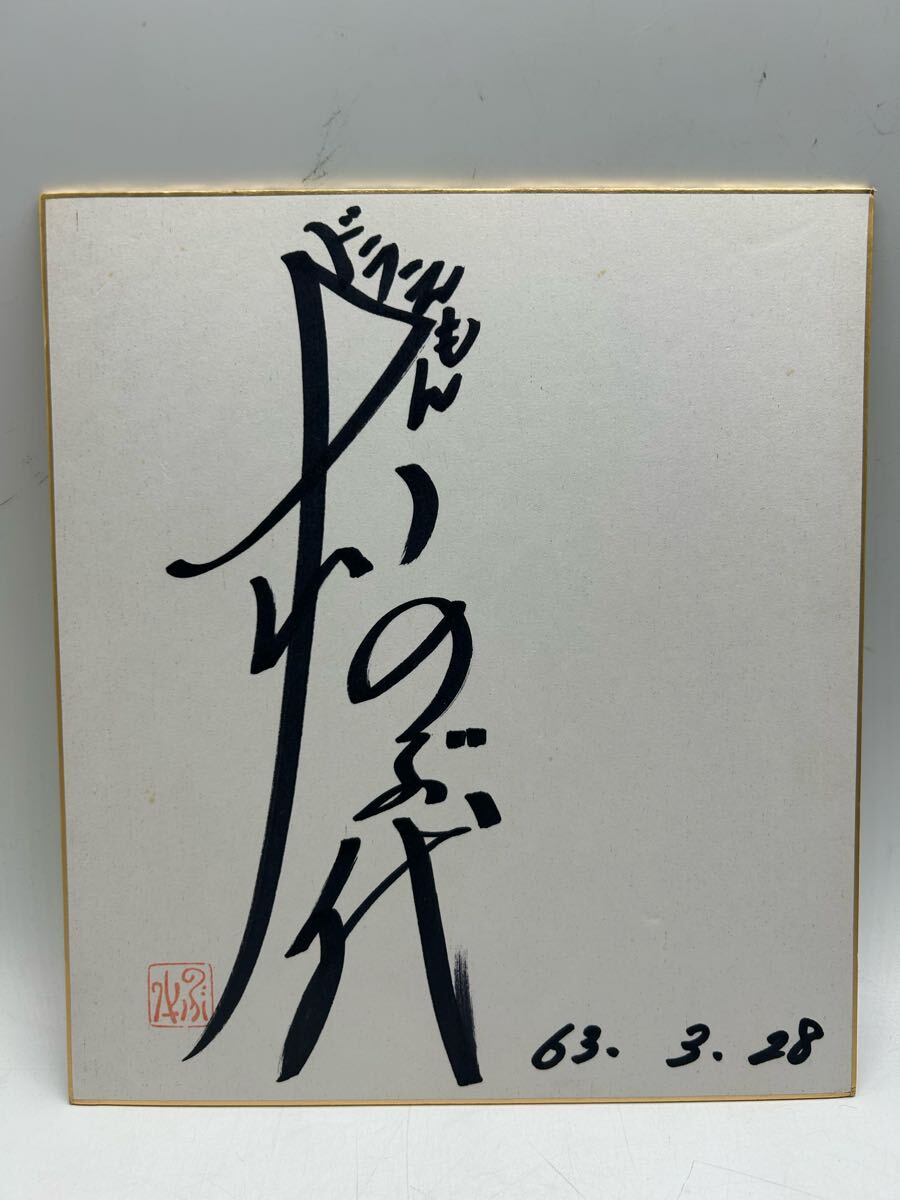 ドラえもん
大山のぶ代
63. 3. 28
のぶ代